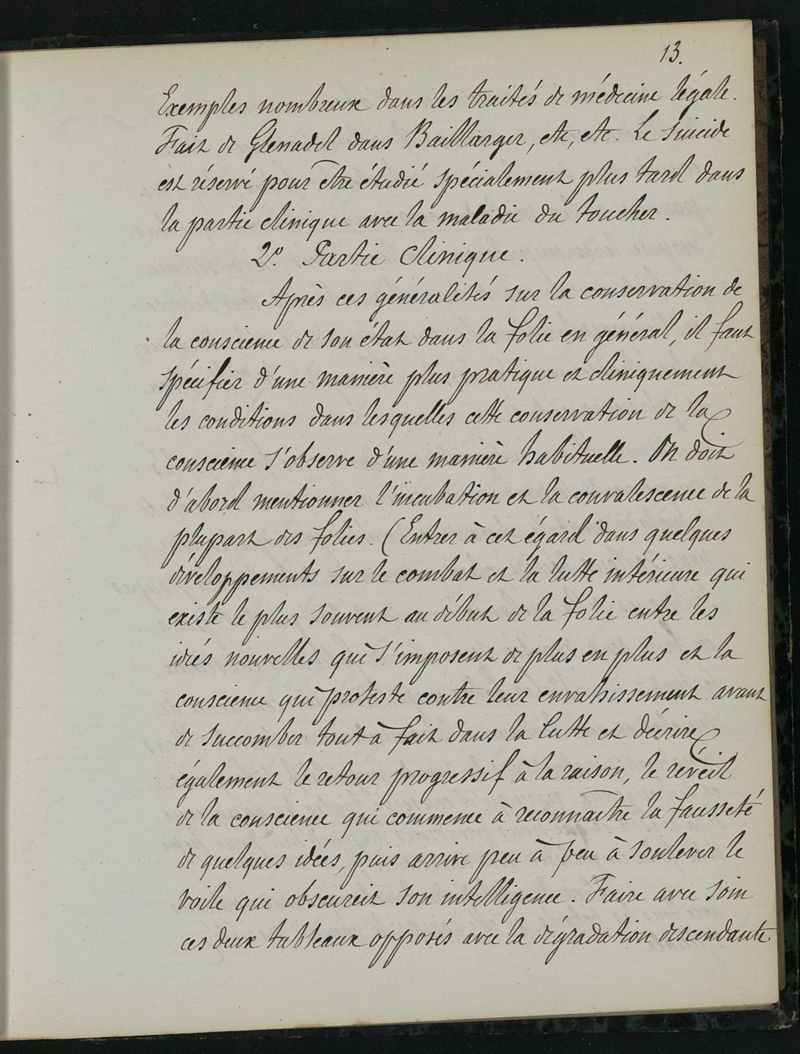 13.
Exemples nombreux dans les traités de médecine légale.
Fait de Glenadel dans Baillarger, etc, etc. Le Suicide
est réservé pour être étudié spécialement plus tard dans
la partie clinique avec la maladie du toucher.
2º. Partie Clinique.
Après ces généralités sur la conservation de
la conscience de son état dans la folie en général, il faut
spécifier d'une manière plus pratique et cliniquement
les conditions dans lesquelles cette conservation de la
conscience s'observe d'une manière habituelle. On doit
d'abord mentionner l'incubation et la convalescence de la
plupart des folies. (Entrer à cet égard dans quelques
développements sur le combat et la lutte intérieure qui
existe le plus souvent au début de la folie entre les
idées nouvelles qui s'imposent de plus en plus et la
conscience qui proteste contre leur envahissement avant
de succomber tout à fait dans la lutte et décrire
également le retour progressif à la raison, le réveil
de la conscience qui commence à reconnaître la fausseté
de quelques idées, puis arrive peu à peu à soulever le
voile qui obscurcit son intelligence. Faire avec soin
ces deux tableaux opposés avec la dégradation descendante